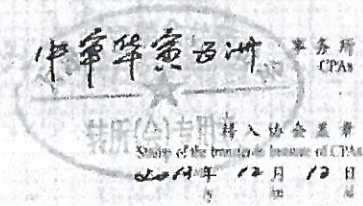 中审华寅五洲 事务所
CPAs
转所(会)专用
转入协会盖章
Stamp of the transfer-in Institute of CPAs
2013年 12月 12日